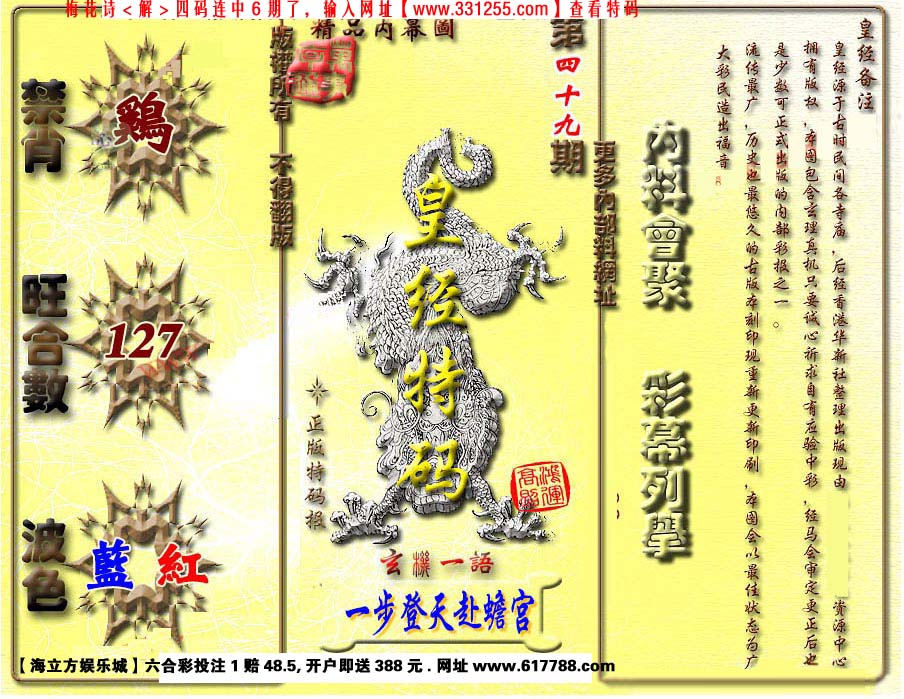 梅花诗＜解＞四码连中6期了，输入网址【www.331255.com】查看特码
精品内幕圖
版權所有 不得翻版
第四十九期
更多內部料網址
禁肖
鷄
旺合數
127
波色
藍 紅
皇经特码
正版特码报
鴻運高照
玄機一語
一步登天赴蟾宫
內料會聚
彩幕列舉
皇经备注
皇经源于古时民间各寺庙，后经香港华新社整理出版现由 资源中心
拥有版权，本图包含玄理真机只要诚心祈求自有应验中彩，经马会审定更正后也
是少数可正式出版的内部彩报之一。
流传最广，历史也最悠久的古版本刻印现重新更新印刷，本图会以最佳状态为广
大彩民造出福音
【海立方娱乐城】六合彩投注1赔48.5,开户即送388元.网址www.617788.com